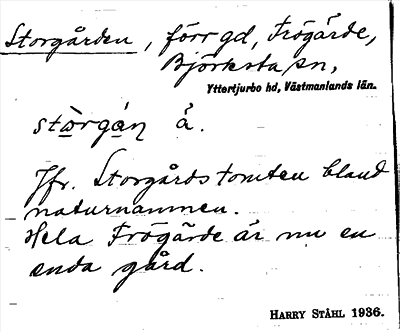 Storgården, förr gd, Frögärde,
Björksta sn,
Yttertjurbo hd, Västmanlands län.
stò̱rgá̱ɳ å.
Jfr. Storgårdstomten bland
naturnamnen.
Hela Frögärde är nu en
enda gård.
HARRY STÅHL 1936.